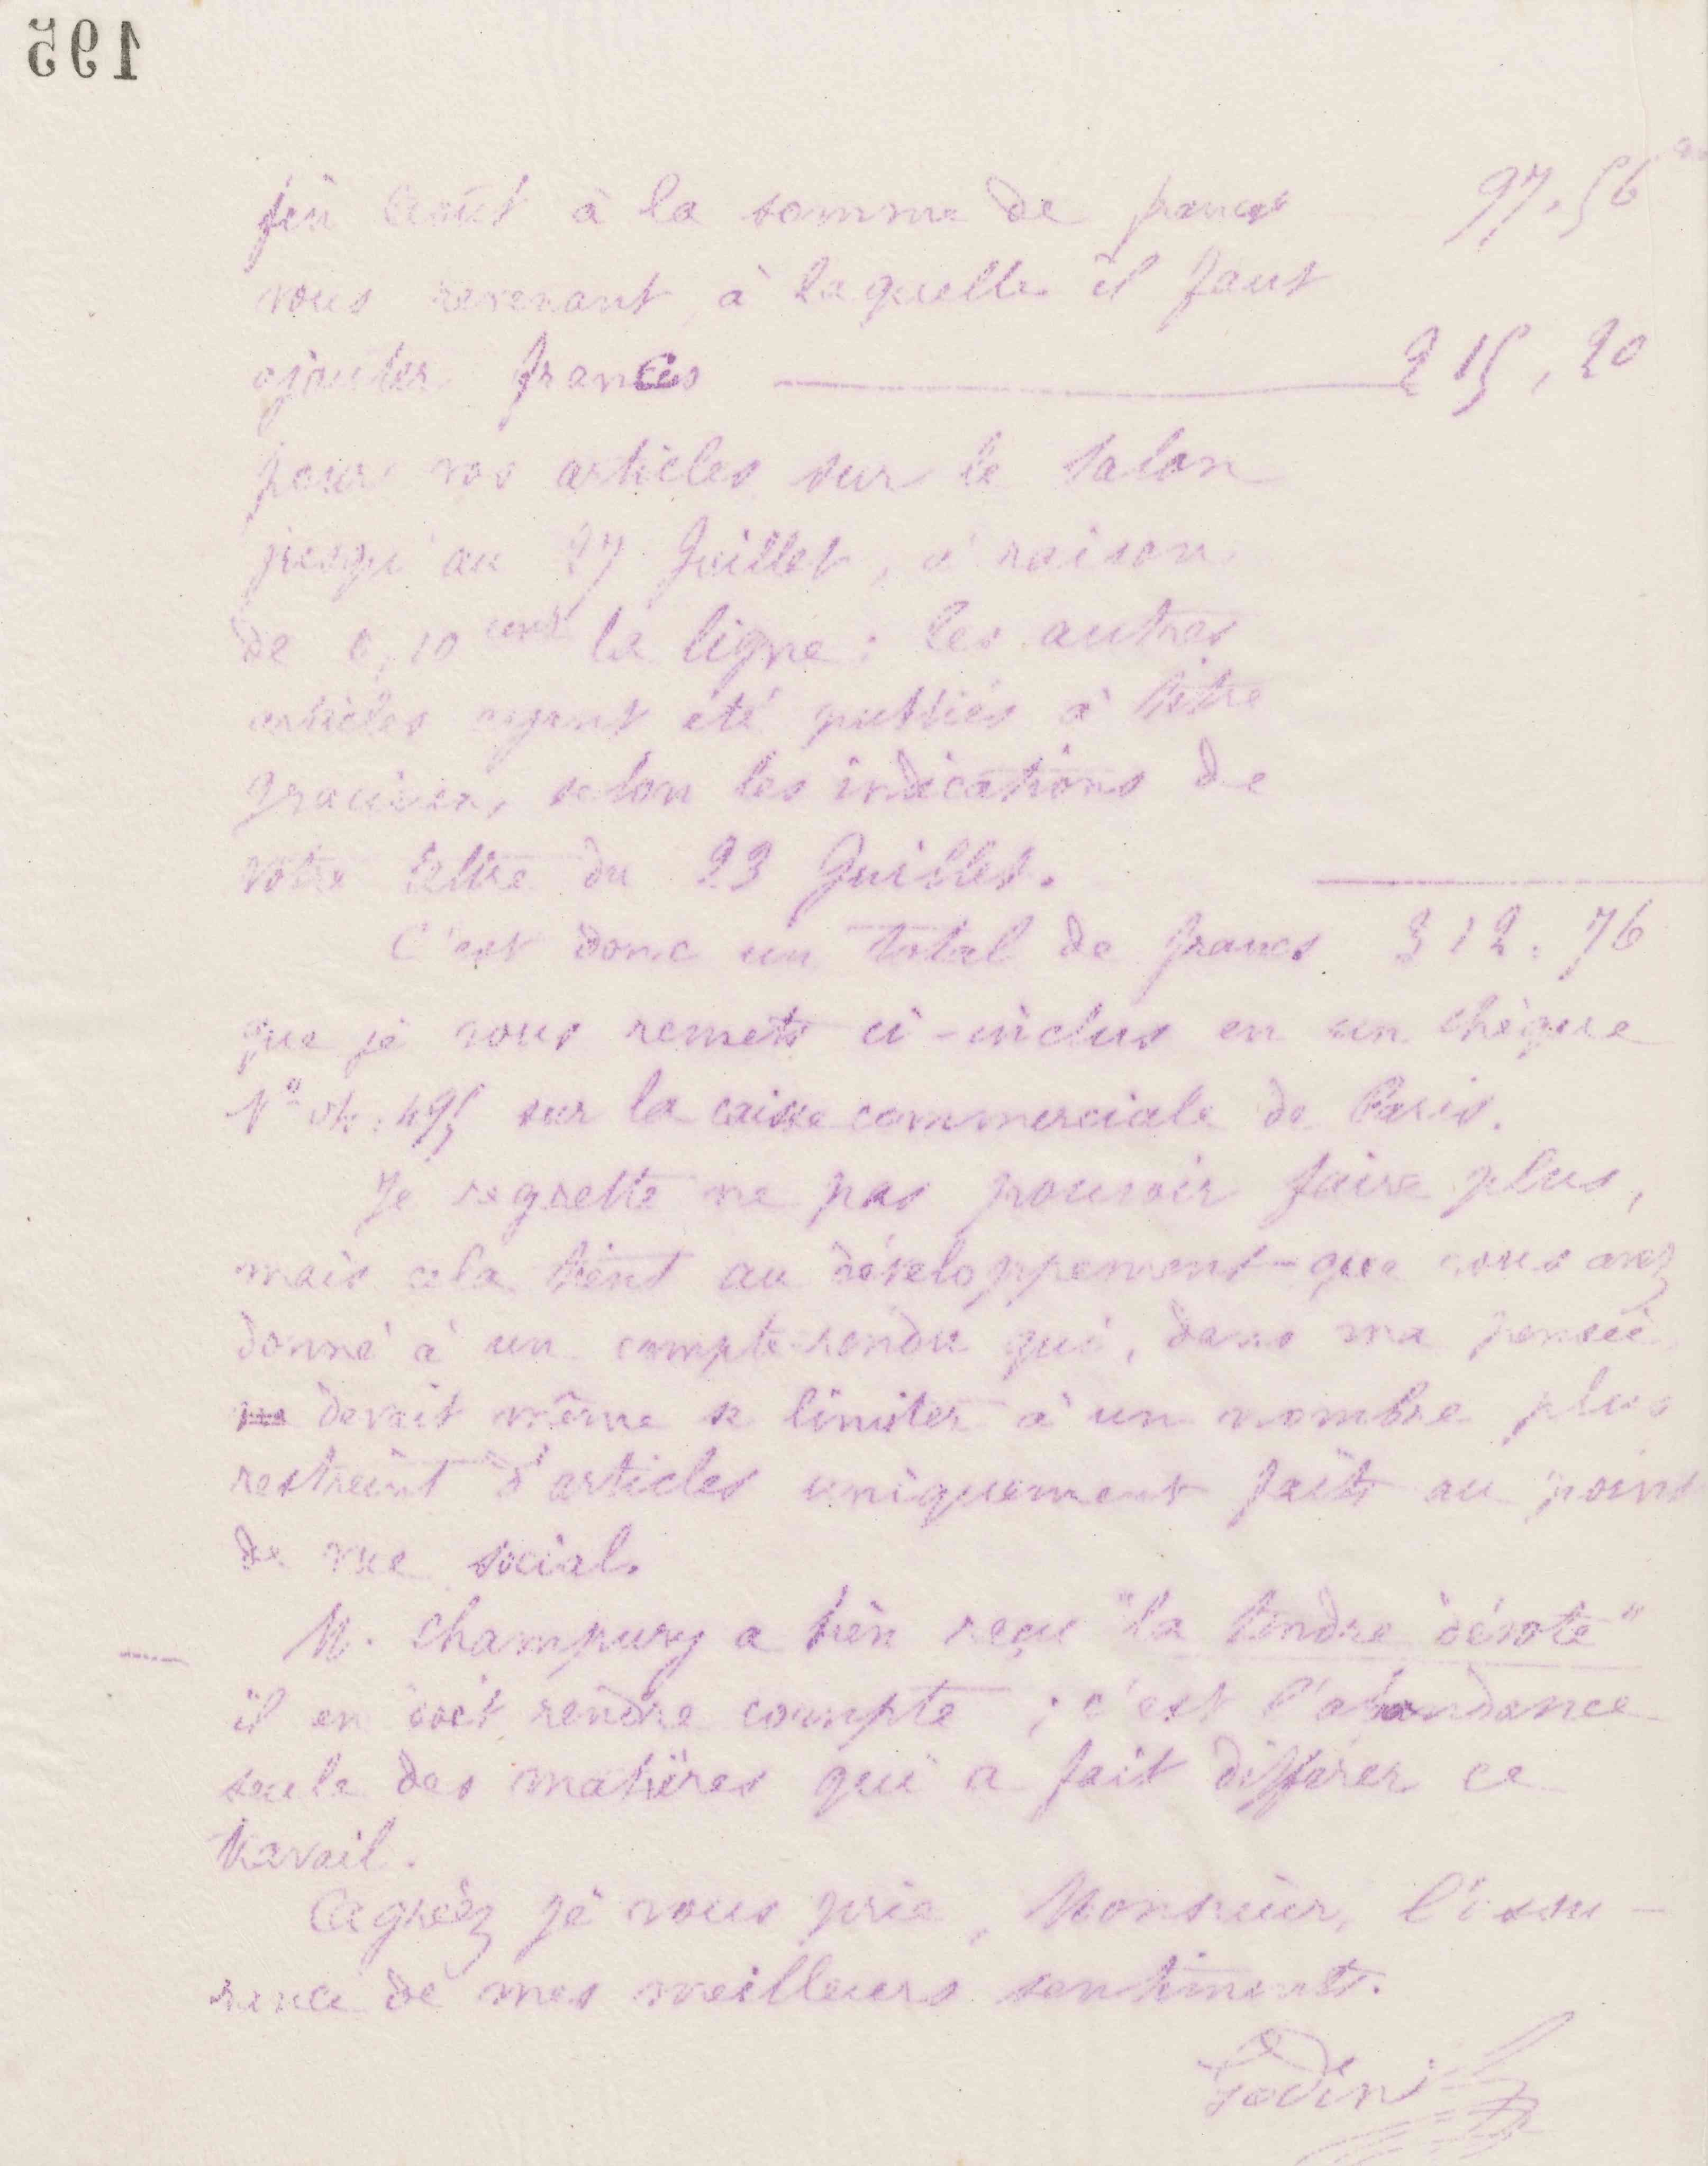 195
fin Août à la somme de francs 97.56
vous revenant, à laquelle il faut
ajouter francs 215,20
pour vos articles sur le Salon
jusqu'au 27 Juillet, à raison
de 0,10 cent la ligne ; les autres
articles ayant été publiés à titre
gracieux, selon les indications de
votre lettre du 23 Juillet.
C'est donc un total de francs 312.76
que je vous remets ci-inclus en un chèque
N° 495 sur la caisse commerciale de Paris.
Je regrette ne pas pouvoir faire plus,
mais cela tient au développement que vous avez
donné à un compte-rendu qui, dans ma pensée
devait même se limiter à un nombre plus
restreint d'articles uniquement faits au point
de vue social.
M. Champury a bien reçu "la tendre dévote"
il en doit rendre compte ; c'est l'abondance
seule des matières qui a fait différer ce
travail.
Agréez je vous prie, Monsieur, l'assu-
rance de mes meilleurs sentiments.
Godin